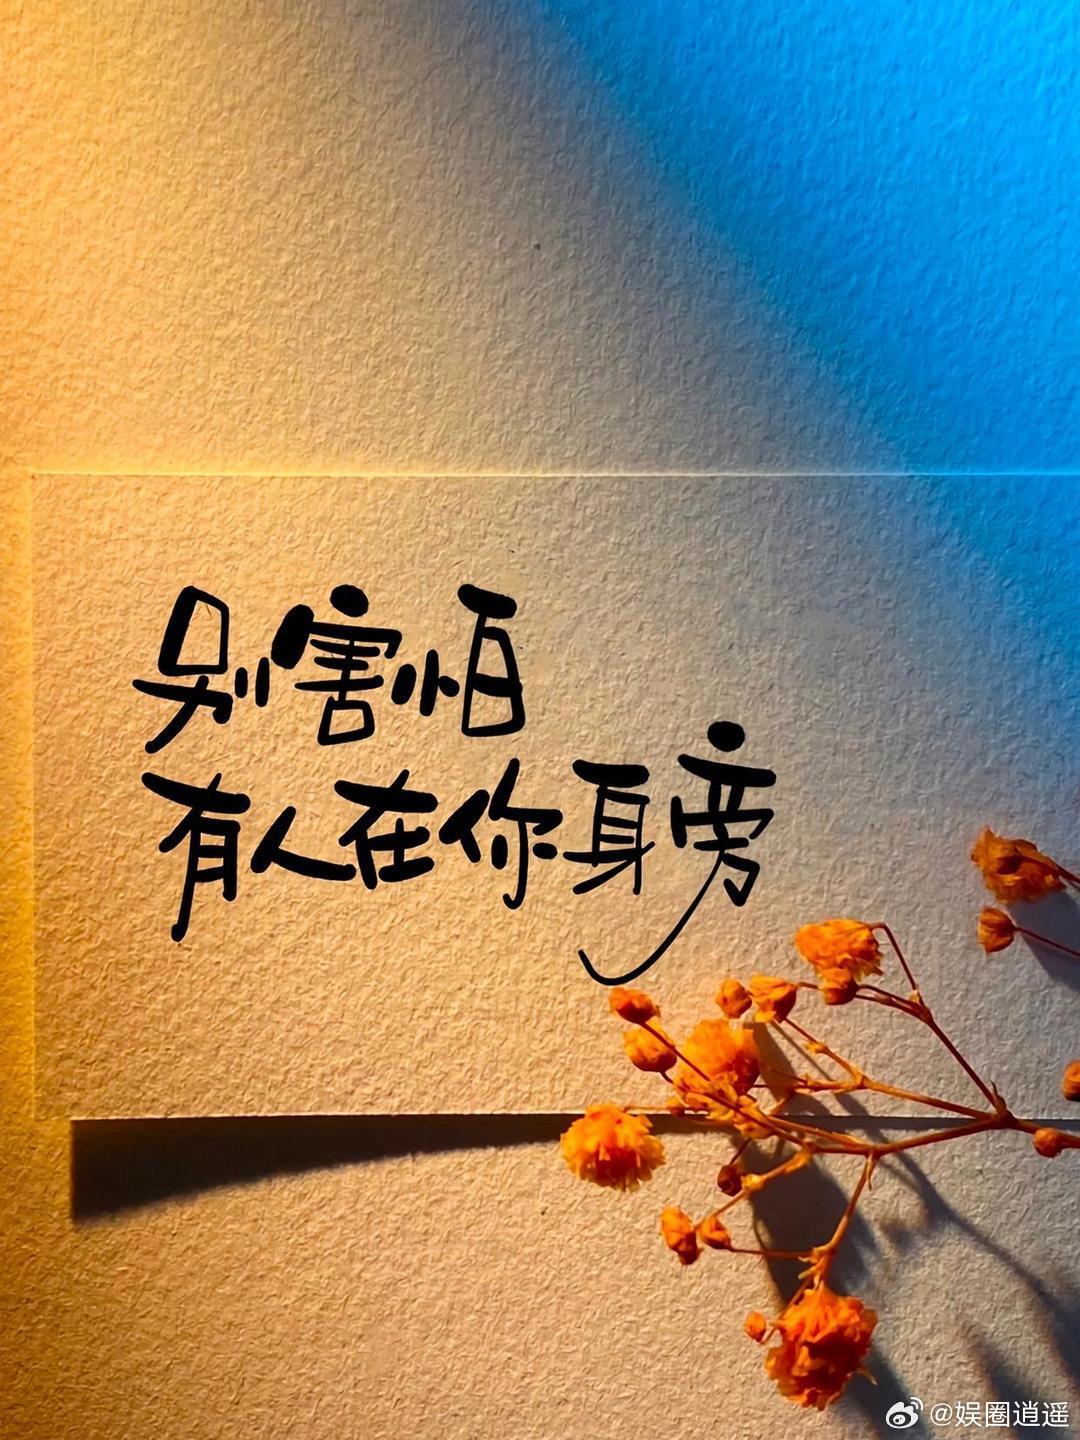 别害怕
有人在你身旁
@娱圈逍遥